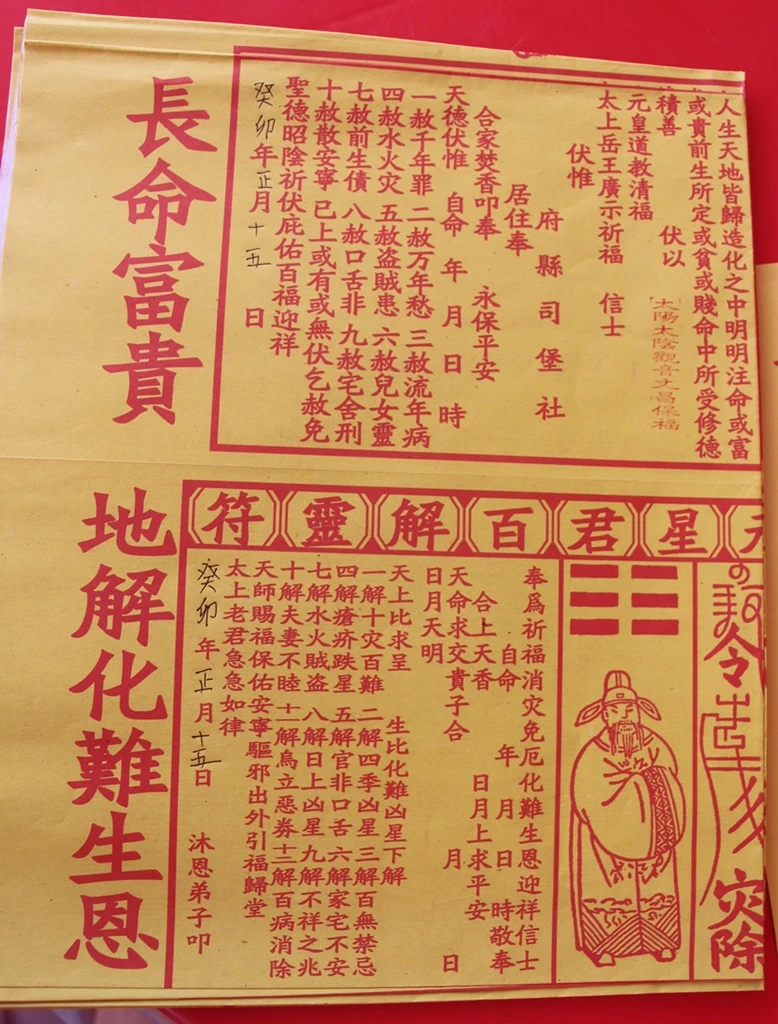 人生天地皆歸造化之中明明注命或富
或貴前生所定或貧或賤命中所受修德
積善 伏以
太陽太陰觀音文昌保福
元皇道教清福
太上岳王廣示祈福 信士
伏惟
府縣司堡社
居住奉
合家焚香叩奉 永保平安
天德伏惟 自命 年月日時
一赦千年罪 二赦万年愁 三赦流年病
四赦水火灾 五赦盗賊患 六赦兒女靈
七赦前生債 八赦口舌非 九赦宅舍刑
十赦散安寧 已上或有或無伏乞赦免
聖德昭陰祈伏庇佑百福迎祥
癸卯年正月十五日
長命富貴
星君百解靈符
令
灾除
奉爲祈福消灾免厄化難生恩迎祥信士
自命 年月日時敬奉
合上天香 日月上求平安
天命求交貴子合 月 日
日月天明
天上比求呈 生比化難凶星下解
一解十灾百難 二解四季凶星 三解百無禁忌
四解瘡疥跌星 五解官非口舌 六解家宅不安
七解水火賊盗 八解日上凶星 九解不祥之兆
十解夫妻不睦 十一解烏立惡券 十二解百病消除
天師賜福保佑安寧驅邪出外引福歸堂
太上老君急急如律
癸卯年正月十五日 沐恩弟子叩
地解化難生恩